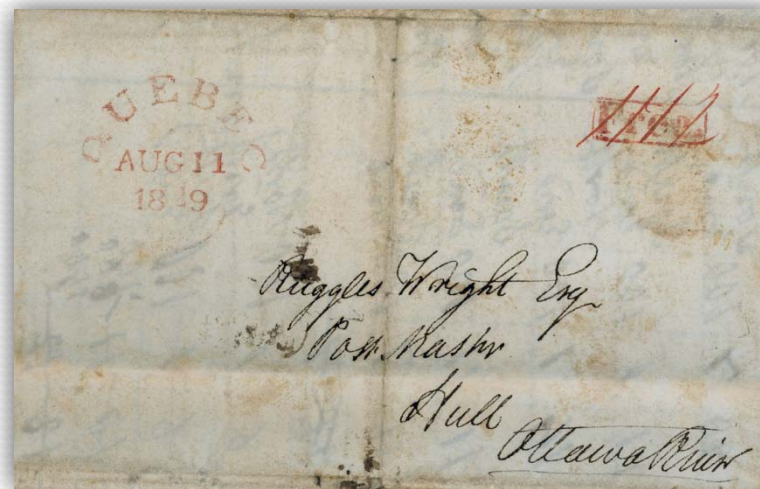 QUEBEC
AUG 11
18 9
Free
Ruggles Wright Esq
Post Master
Hull
Ottawa River